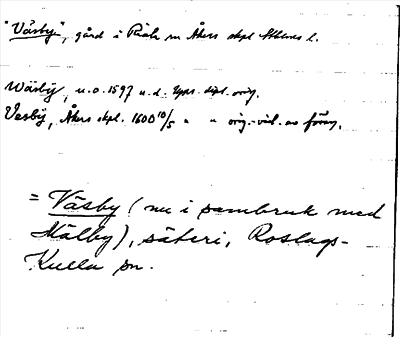 "Väsby", gård i Riala sn Åkers skpl Sthlms l.
Wäsbÿ, u.o. 1597 u.d. Upps. dipl. orig.
Vesbÿ, Åkers skpl. 1600 10/5 " " orig.-vid. av förg.
= Väsby (nu i sambruk med
Mälby), säteri, Roslags-
Kulla sn.